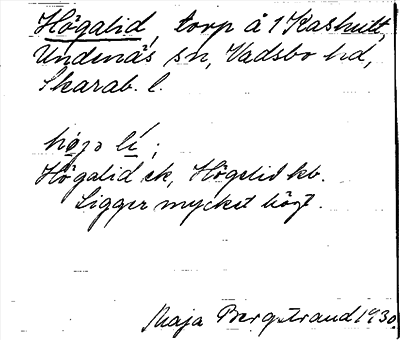 Högalid, torp å 1 Kashult,
Undenäs sn, Vadsbo hd,
Skarab. l.
hø̀gɔ lí;
Högalid ek, Högelid kb.
Ligger mycket högt.
Maja Bergstrand 1930.